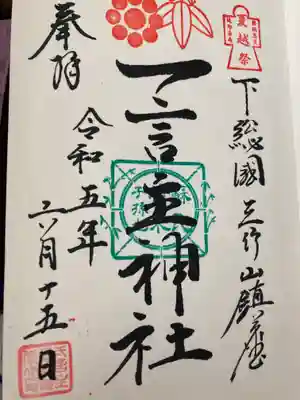 夏越祭
下総國 三竹山鎮座
一言主神社
奉拝
令和五年
六月十五日